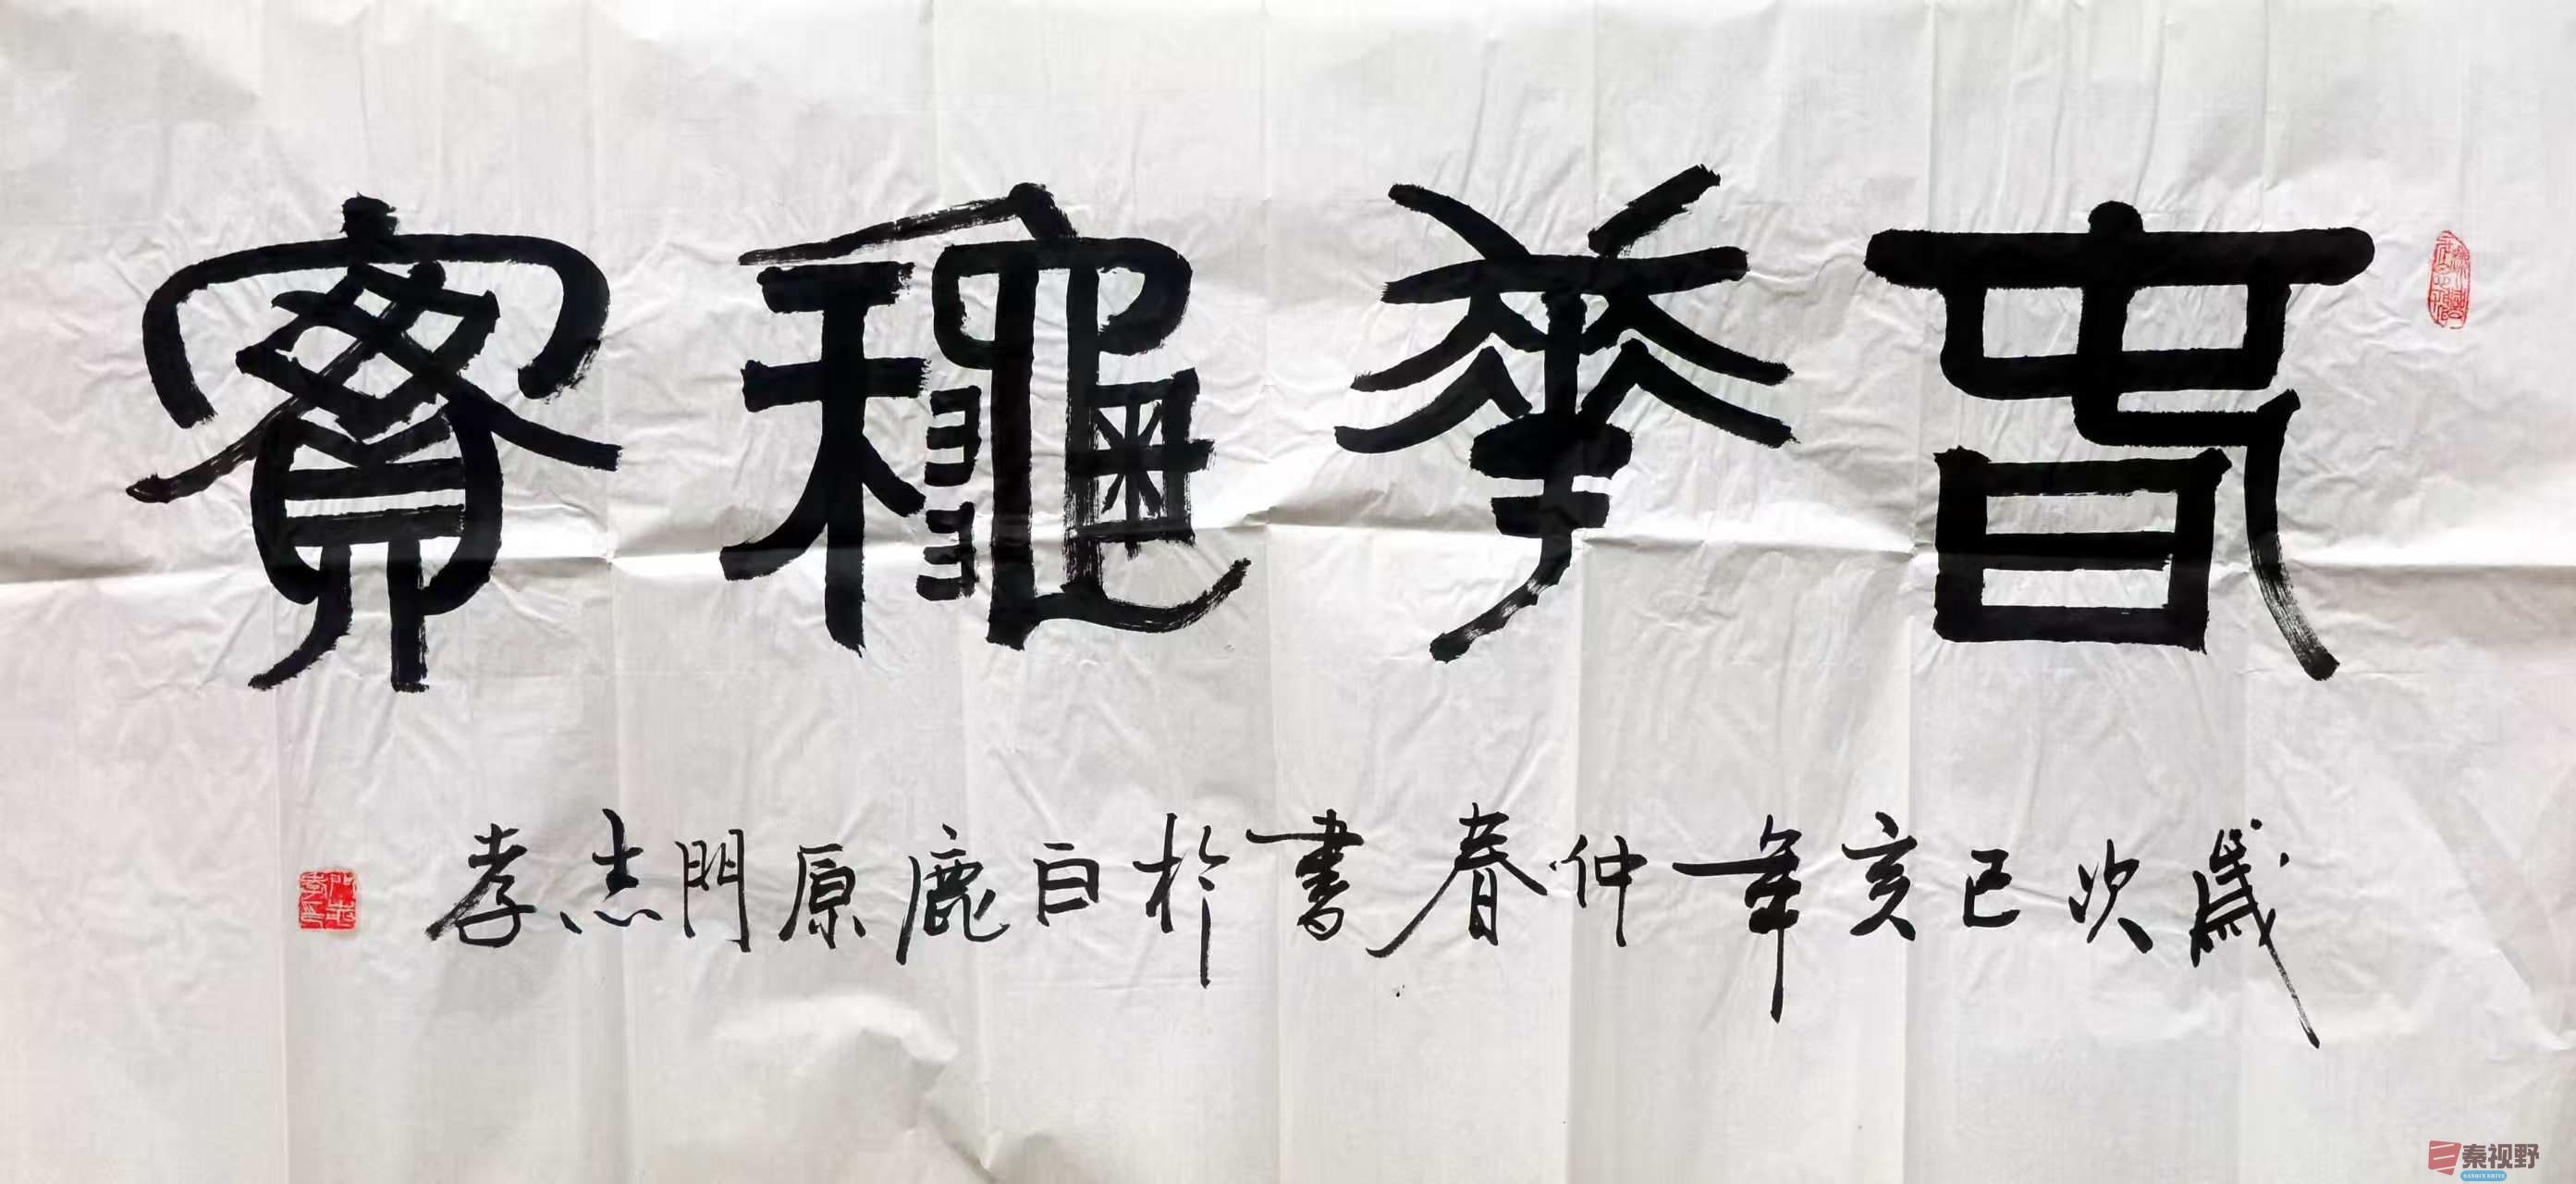 春華穐實
歲次己亥年仲春書於白鹿原門志孝
秦视野